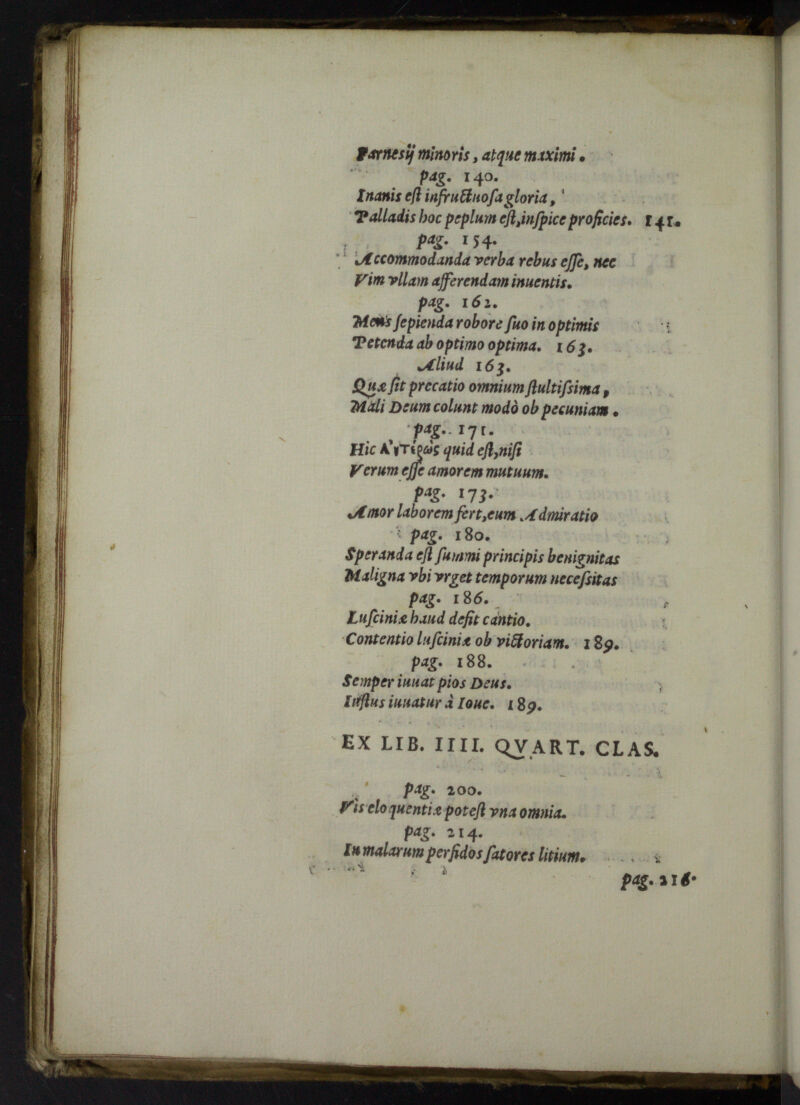 Farnesij minoris, atque maximi.
pag. 140.
Inanis eſt infructuoſa gloria,
Palladis hoc peplum eſt, inſpice proficies. 141.
pag. 154.
Accommodanda verba rebus eſſe, nec
Vim vllam afferendam inuentis.
pag. 162.
Mens ſepienda robore ſuo in optimis
Petenda ab optimo optima. 163.
Aliud 163.
Quæ ſit precatio omnium ſtultiſsima,
Mali Deum colunt modò ob pecuniam.
pag. 171.
Hic quid eſt, niſi
Verum eſſe amorem mutuum.
pag. 173.
Amor laborem fert, eum Admiratio
pag. 180.
Speranda eſt ſummi principis benignitas
Maligna vbi vrget temporum neceſsitas
pag. 186.
Luſciniæ haud defit cantio.
Contentio luſciniæ ob victoriam. 189.
pag. 188.
Semper iuuat pios Deus.
Iuſtus iuuatur à Ioue. 189.
EX LIB. IIII. QVART. CLAS.
pag. 200.
Vis eloquentiæ poteſt vna omnia.
pag. 214.
In malarum perfidos ſatores litium.
pag. 216.